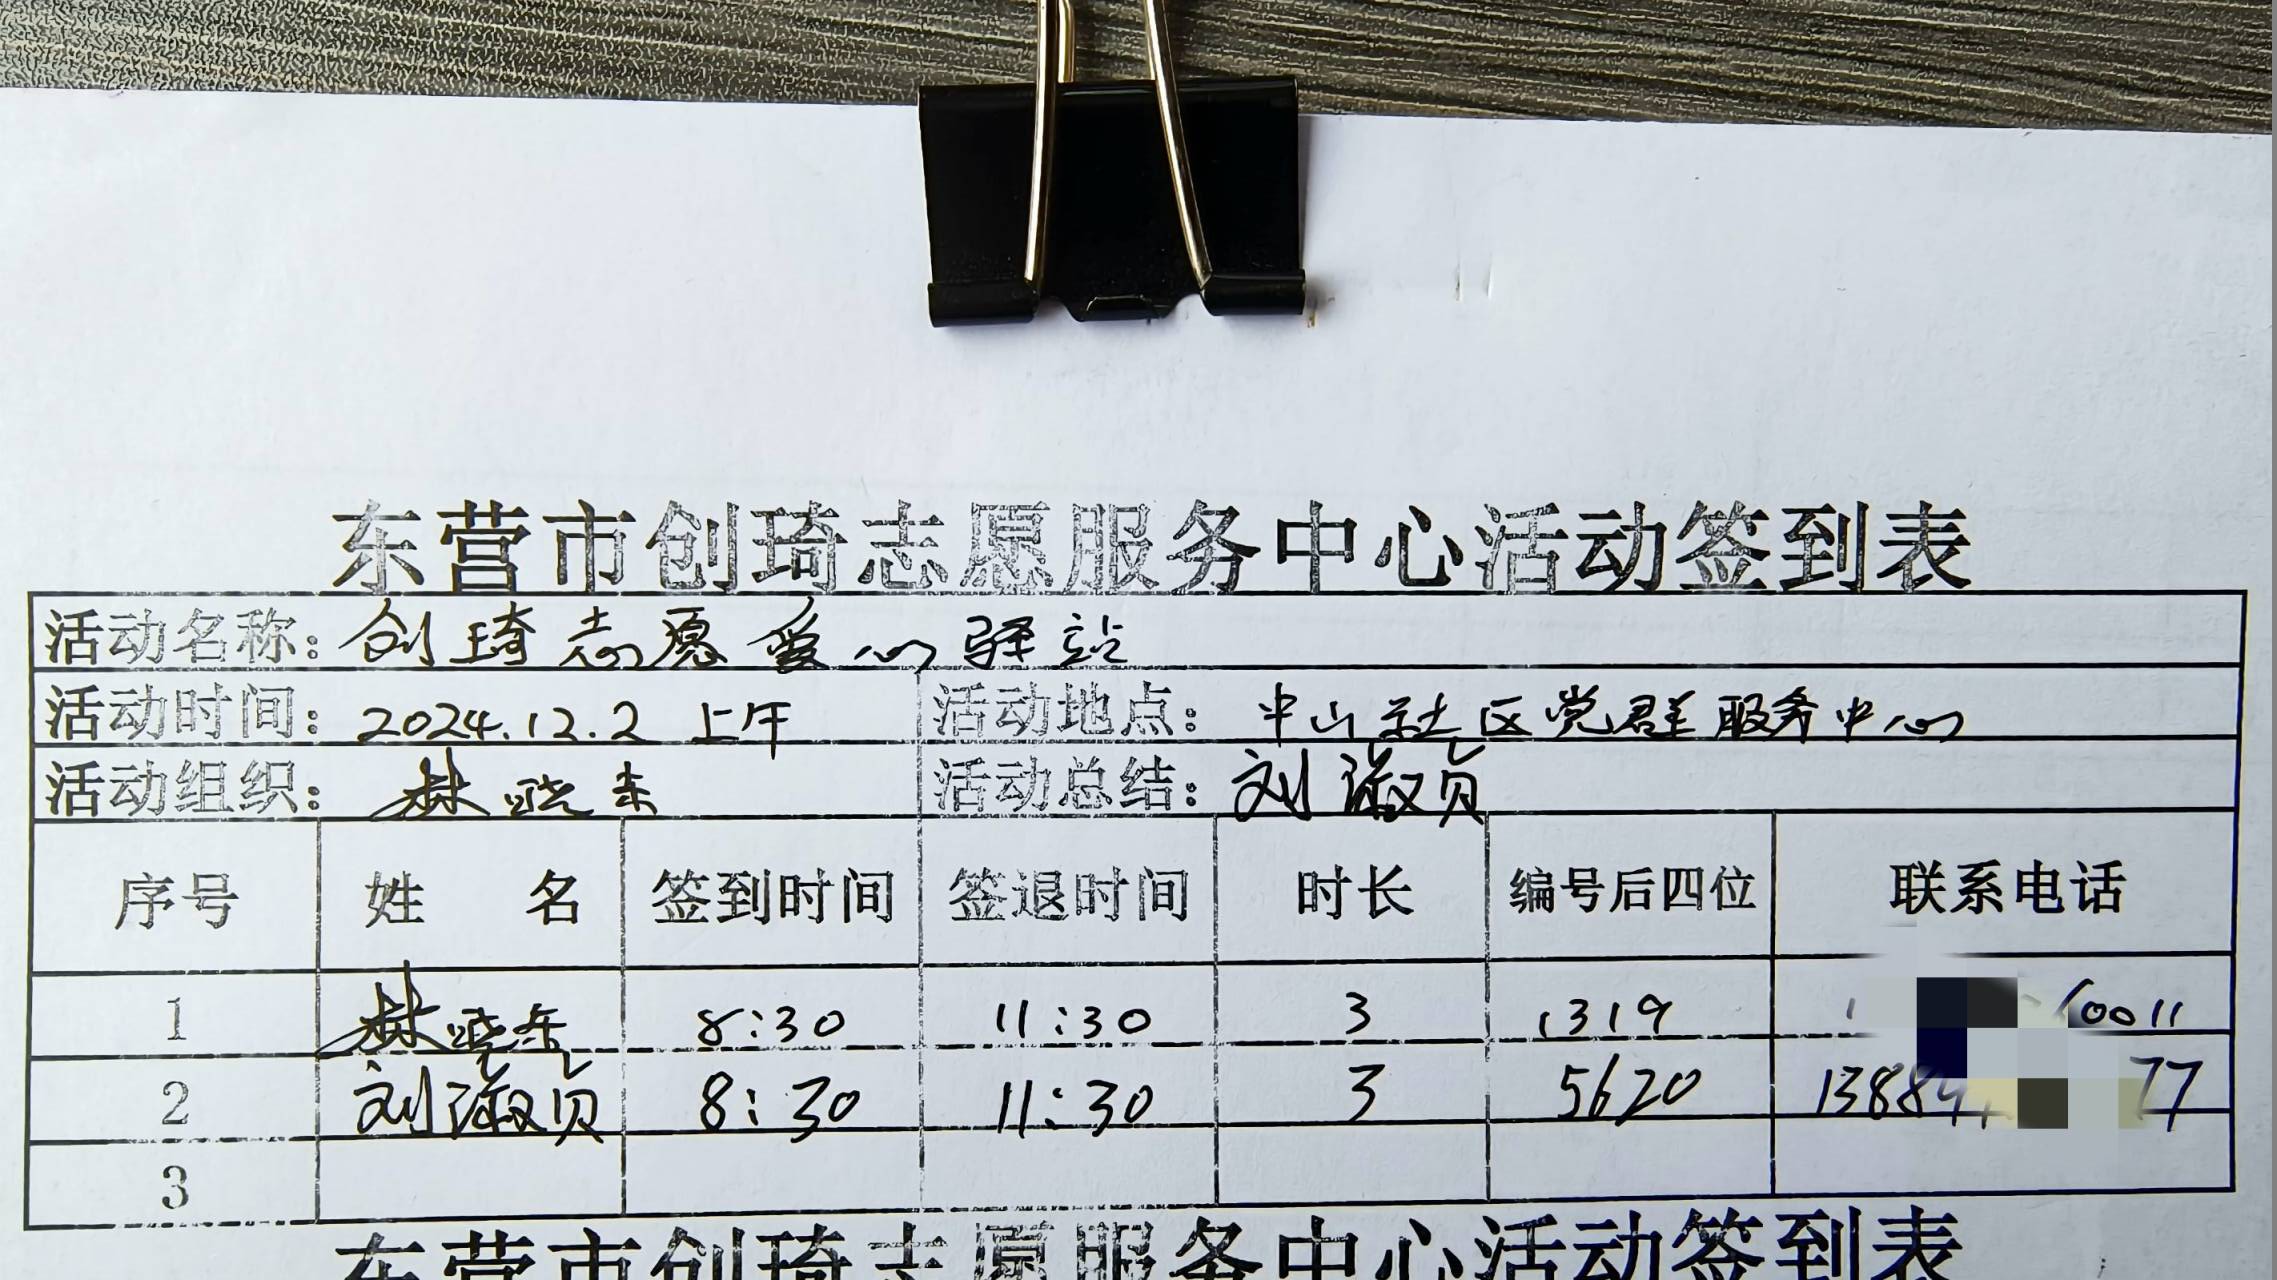 东营市创琦志愿服务中心活动签到表
活动名称：创琦志愿爱心驿站
活动时间：2024.12.2 上午 活动地点：半山社区党群服务中心
活动组织：林晓东 活动总结：刘淑贞
序号 姓 名 签到时间 签退时间 时长 编号后四位 联系电话
1 林晓东 8:30 11:30 3 1319 60011
2 刘淑贞 8:30 11:30 3 5620 1388 77
3
东营市创琦志愿服务中心活动签到表